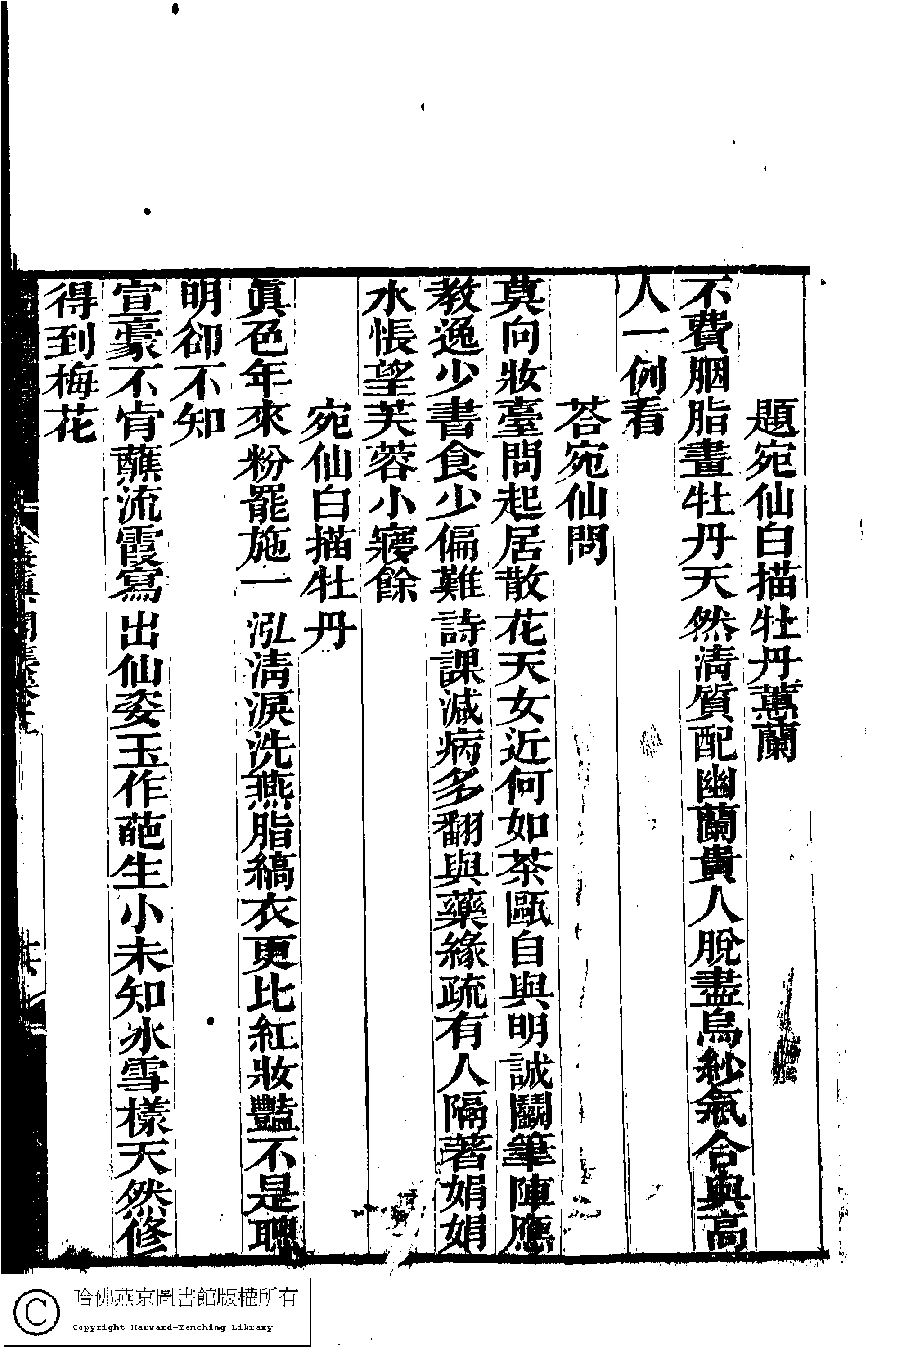 題宛仙白描牡丹蕙蘭
不費胭脂畫牡丹天然淸質配幽蘭貴人脫盡烏紗氣合與高
人一例看
荅宛仙問
莫向妝臺問起居散花天女近何如茶甌自與明誠鬭筆陣應
教逸少書食少偏難詩課減病多翻與藥緣疏有人隔著娟娟
水悵望芙蓉小寢餘
宛仙白描牡丹
眞色年來粉罷施一泓淸淚洗燕脂縞衣更比紅妝豔不是聰
明卻不知
宣豪不肯蘸流霞寫出仙姿玉作葩生小未知冰雪樣天然修
得到梅花
哈佛燕京圖書館版權所有
Copyright Harvard-Yenching Library